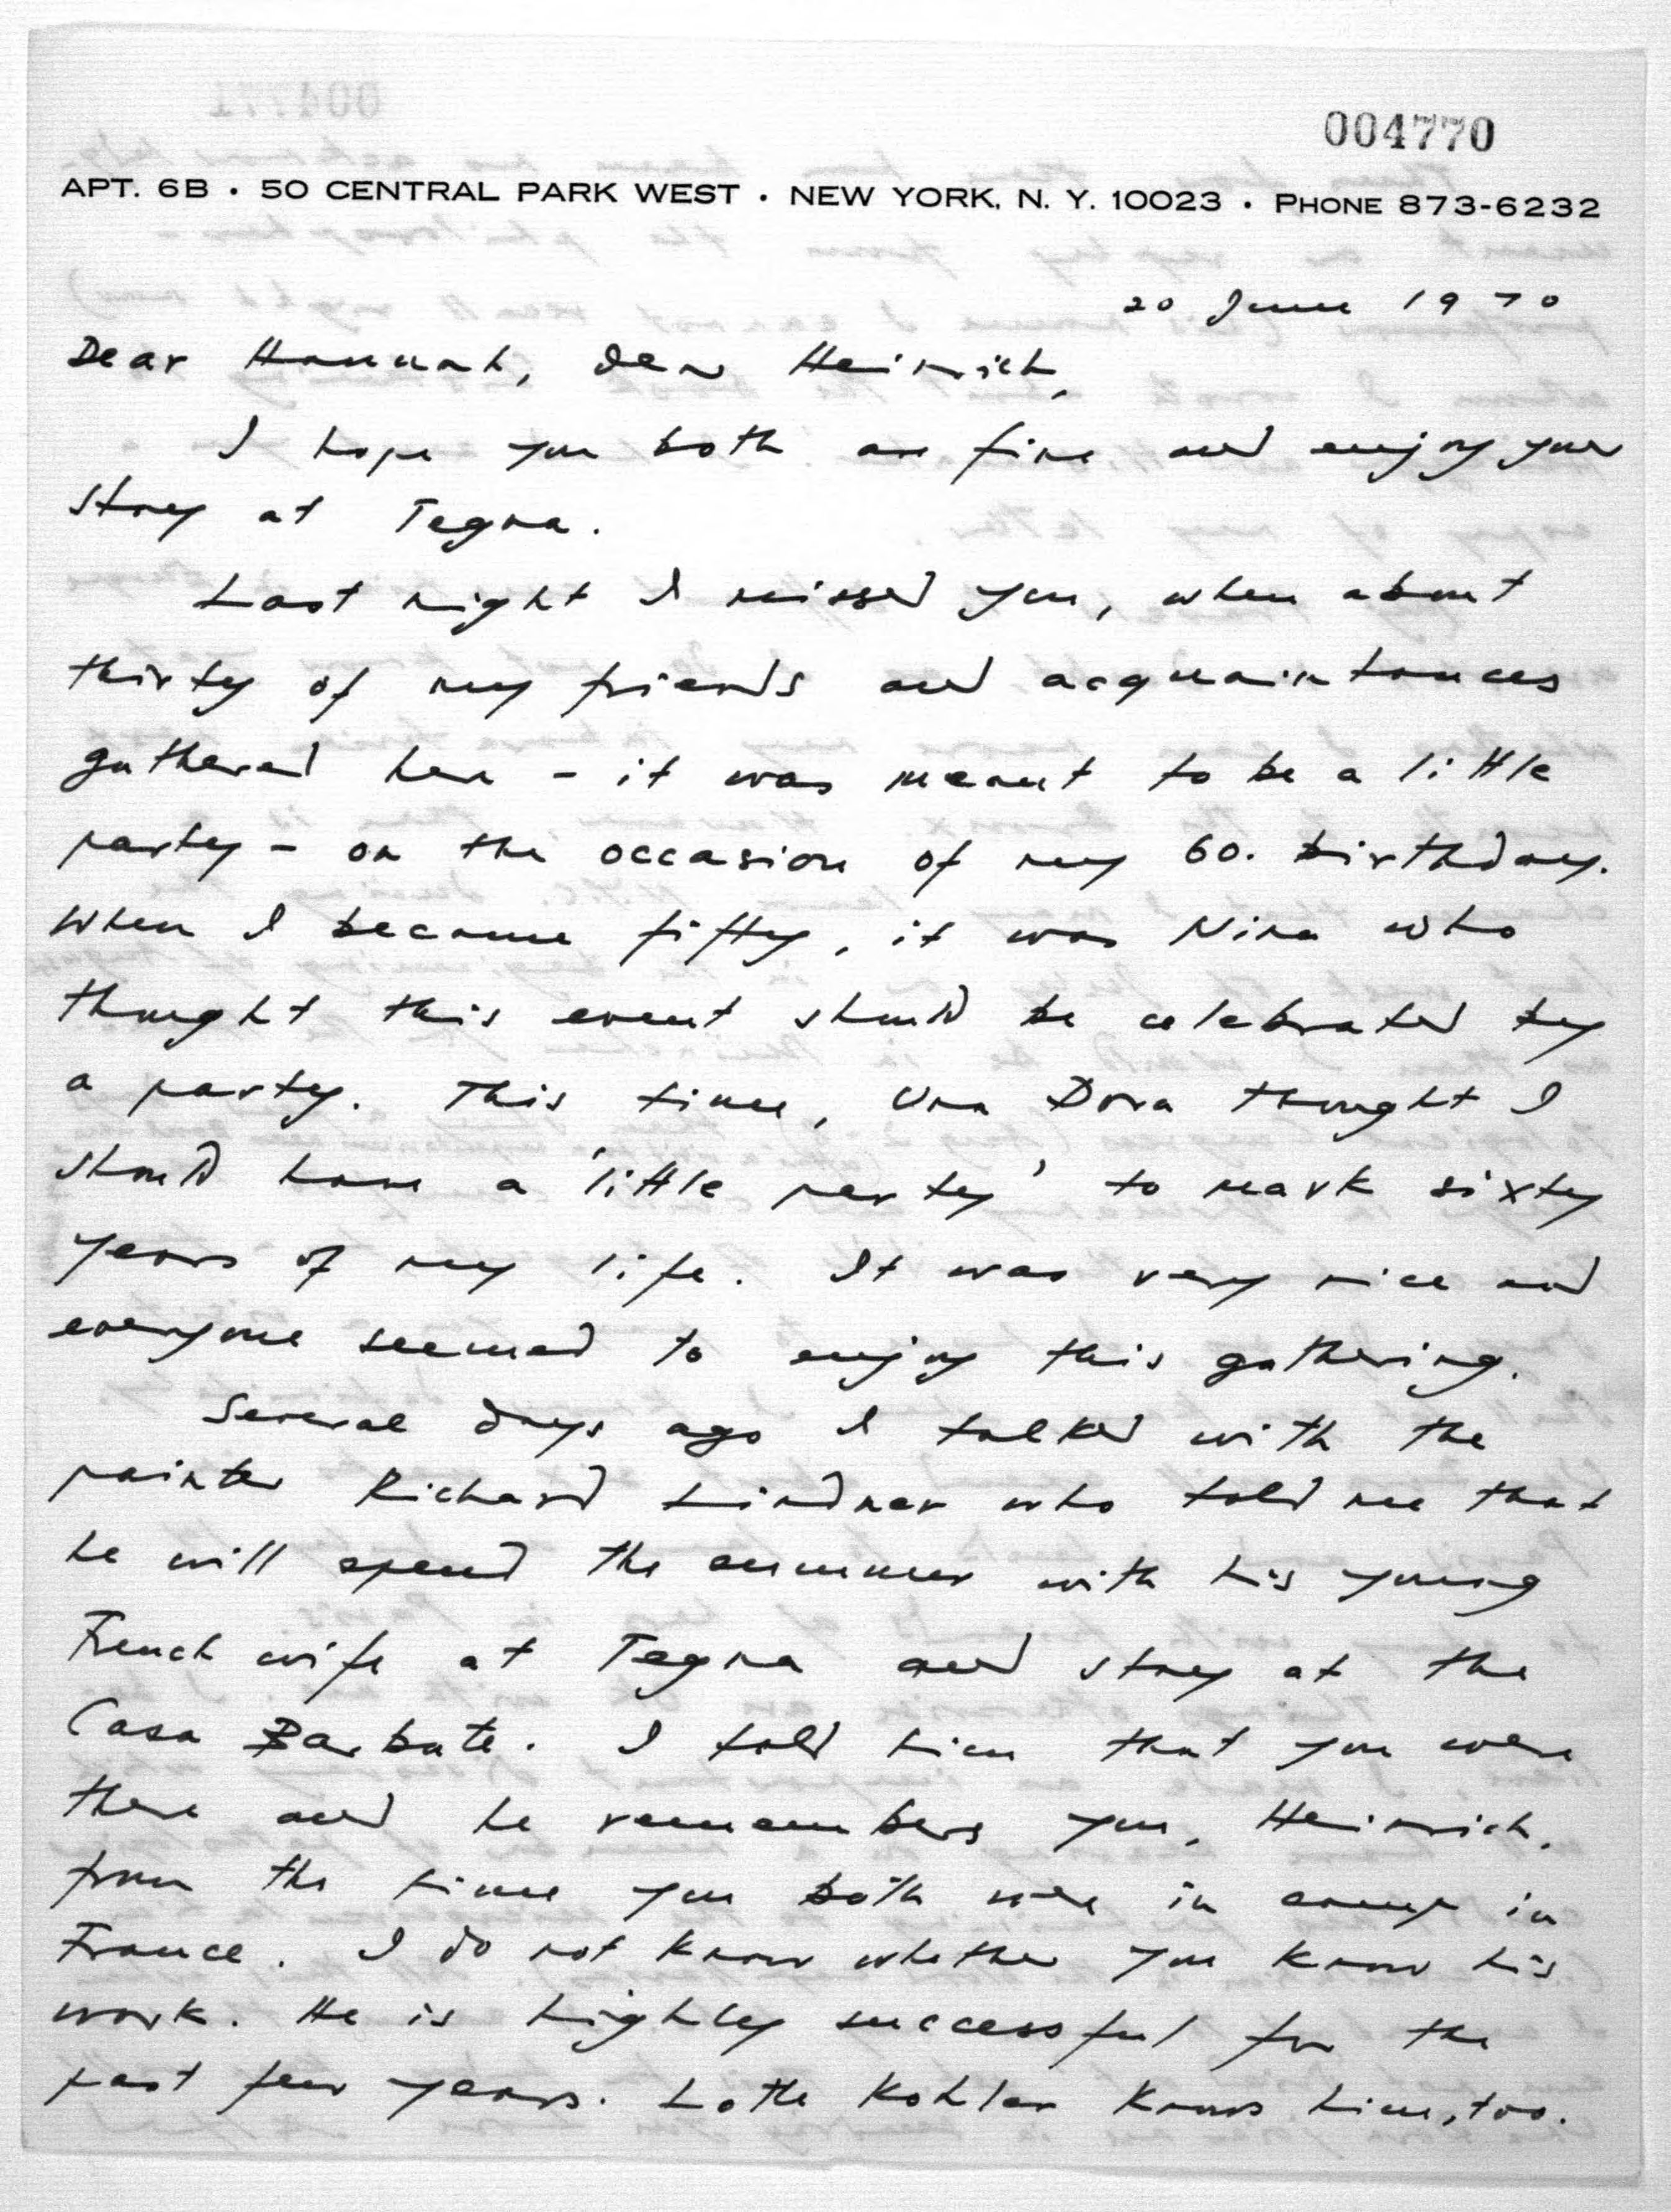 004770
APT. 6B • 50 CENTRAL PARK WEST • NEW YORK, N. Y. 10023 • PHONE 873-6232
20 June 1970
Dear Hannah, dear Heinrich,
I hope you both are fine and enjoy your
stay at Tegna.
Last night I missed you, when about
thirty of my friends and acquaintances
gathered here – it was meant to be a little
party – on the occasion of my 60. birthday.
When I became fifty, it was Nina who
thought this event should be celebrated by
a party. This time, Una Dora thought I
should have a 'little party' to mark sixty
years of my life. It was very nice and
everyone seemed to enjoy this gathering.
Several days ago I talked with the
painter Richard Lindner who told me that
he will spend the summer with his young
French wife at Tegna and stay at the
Casa Barbate. I told him that you were
there and he remembers you, Heinrich,
from the time you both were in camp in
France. I do not know whether you know his
work. He is highly successful for the
past few years. Lotte Kohler knows him, too.